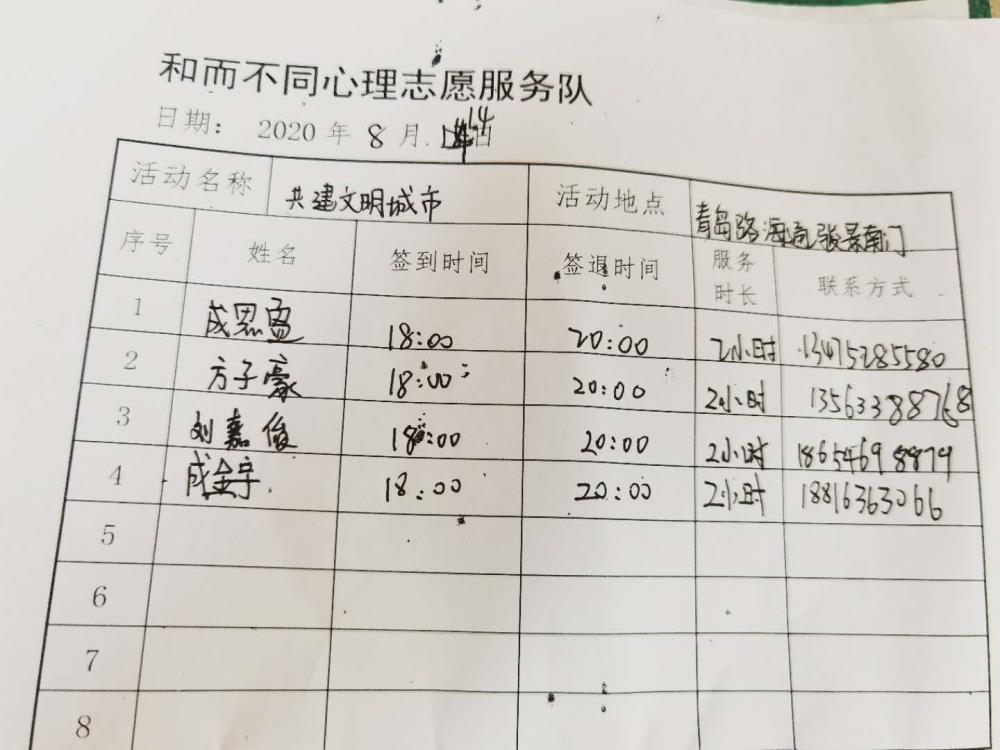 和而不同心理志愿服务队
日期： 2020 年 8 月 14
活动名称 共建文明城市 活动地点 青岛路海通骏景南门
序号 姓名 签到时间 签退时间 服务时长 联系方式
1 成思盈 18:00 20:00 2小时 13475285580
2 方子豪 18:00 20:00 2小时 13563388768
3 刘嘉俊 18:00 20:00 2小时 18654698879
4 成金宇 18:00 20:00 2小时 18816363066
5
6
7
8